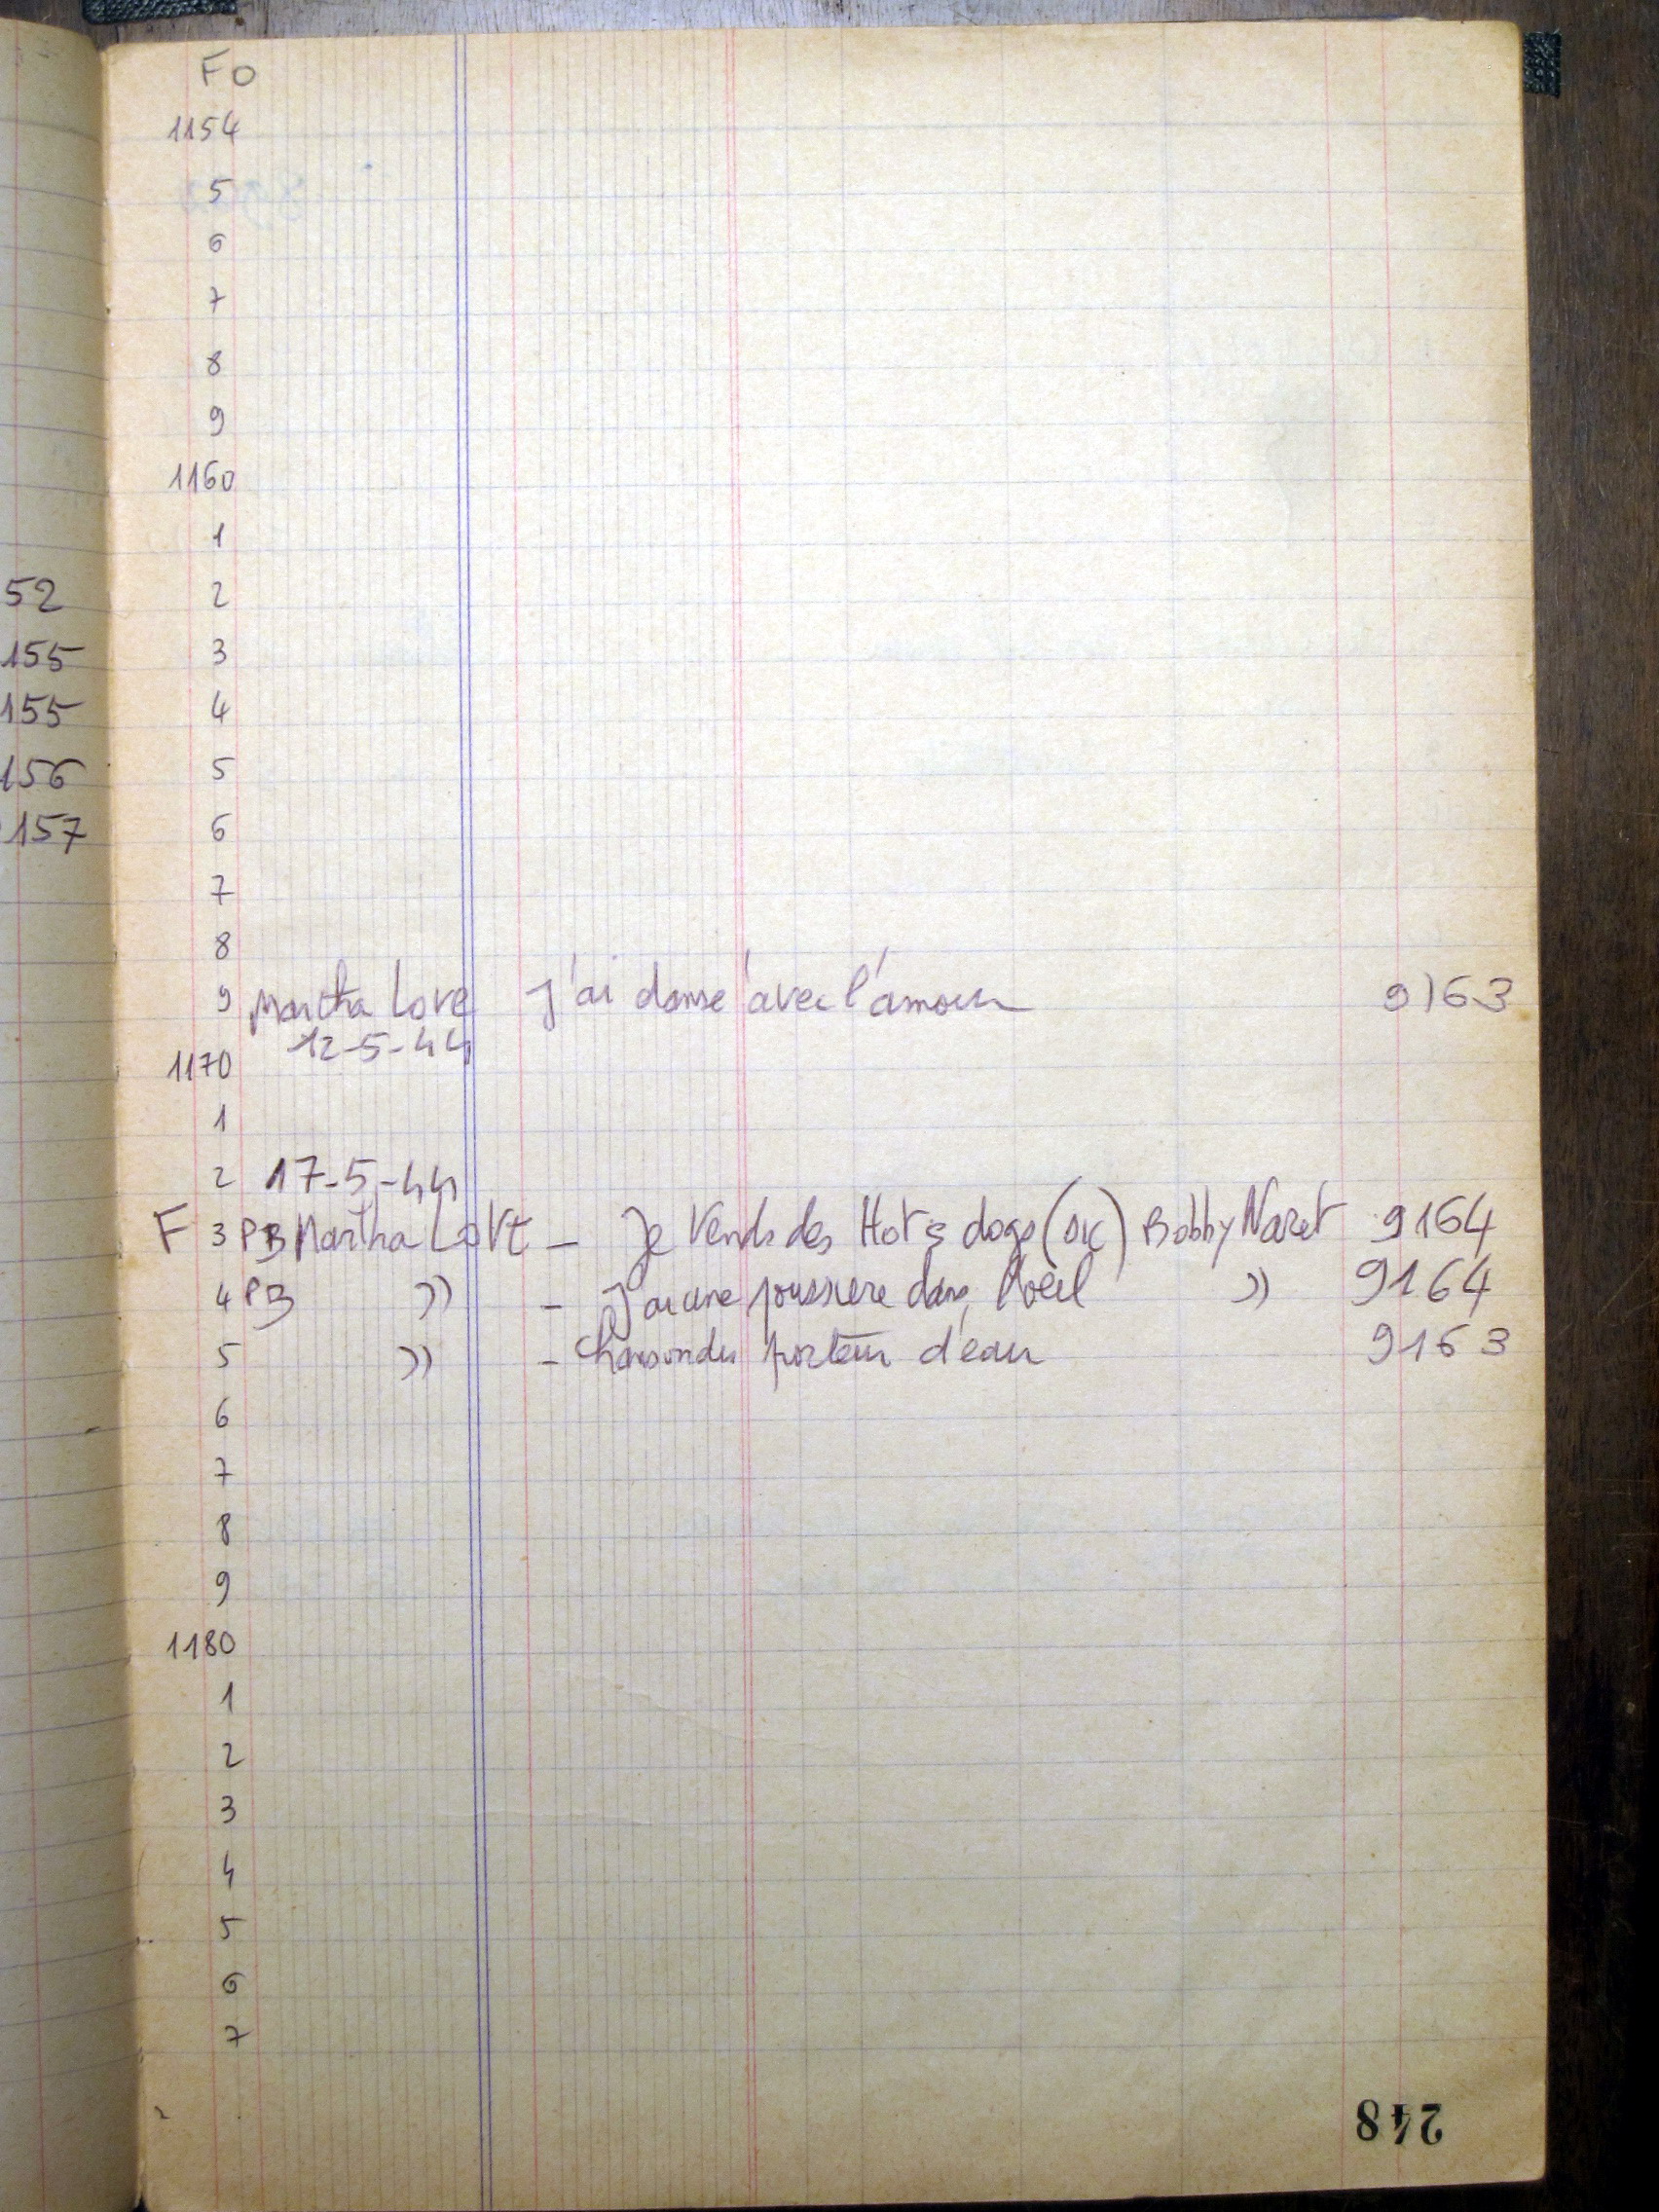 FO
1154
5
6
7
8
9
1160
1
52 2
155 3
155 4
156 5
157 6
7
8
9 Martha Love J'ai dansé avec l'amour 9163
12-5-44
1170
1
2 17-5-44
F 3 PB Martha Love - Je vends des Hot's dogs (sic) Bobby Naret 9164
4 PB " - J'ai une poussière dans l'oeil " 9164
5 " - Chanson du porteur d'eau 9163
6
7
8
9
1180
1
2
3
4
5
6
7
248